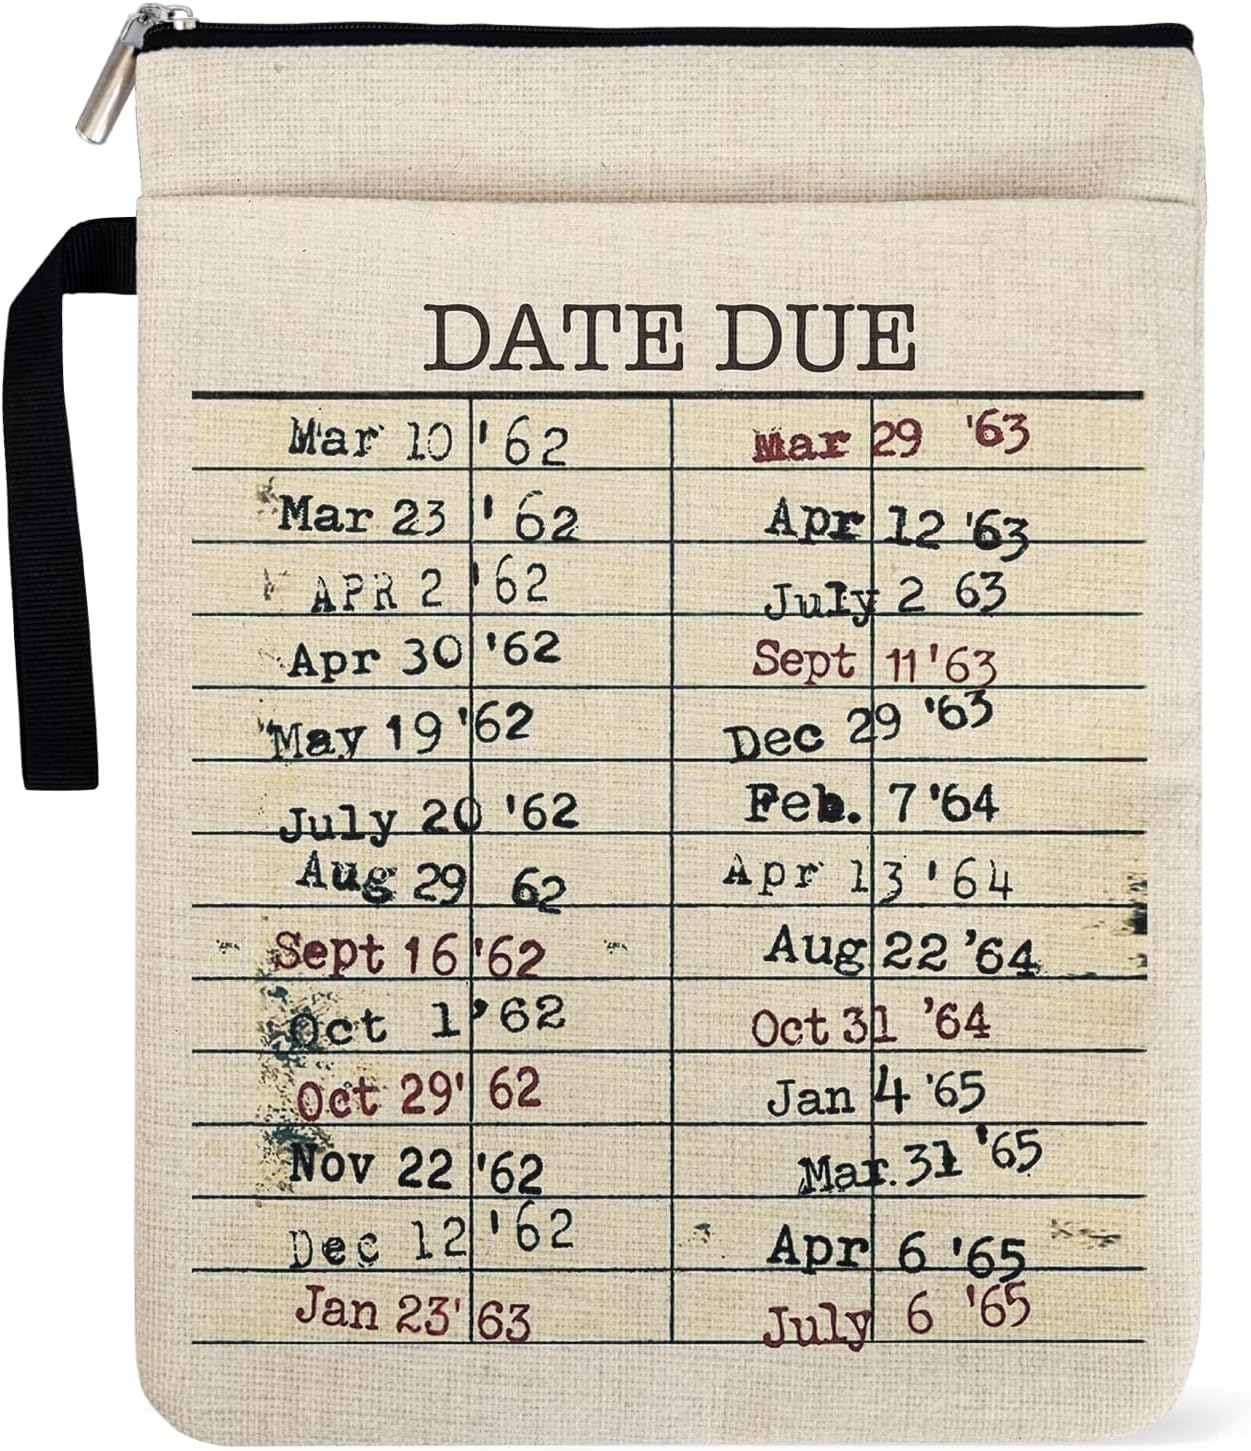 DATE DUE
Mar 10 '62
Mar 23 '62
APR 2 '62
Apr 30 '62
May 19 '62
July 20 '62
Aug 29 62
Sept 16 '62
Oct 1 '62
Oct 29' 62
Nov 22 '62
Dec 12 '62
Jan 23' 63
Mar 29 '63
Apr 12 '63
July 2 63
Sept 11 '63
Dec 29 '63
Feb. 7 '64
Apr 13 '64
Aug 22 '64
Oct 31 '64
Jan 4 '65
Mar. 31 '65
Apr 6 '65
July 6 '65